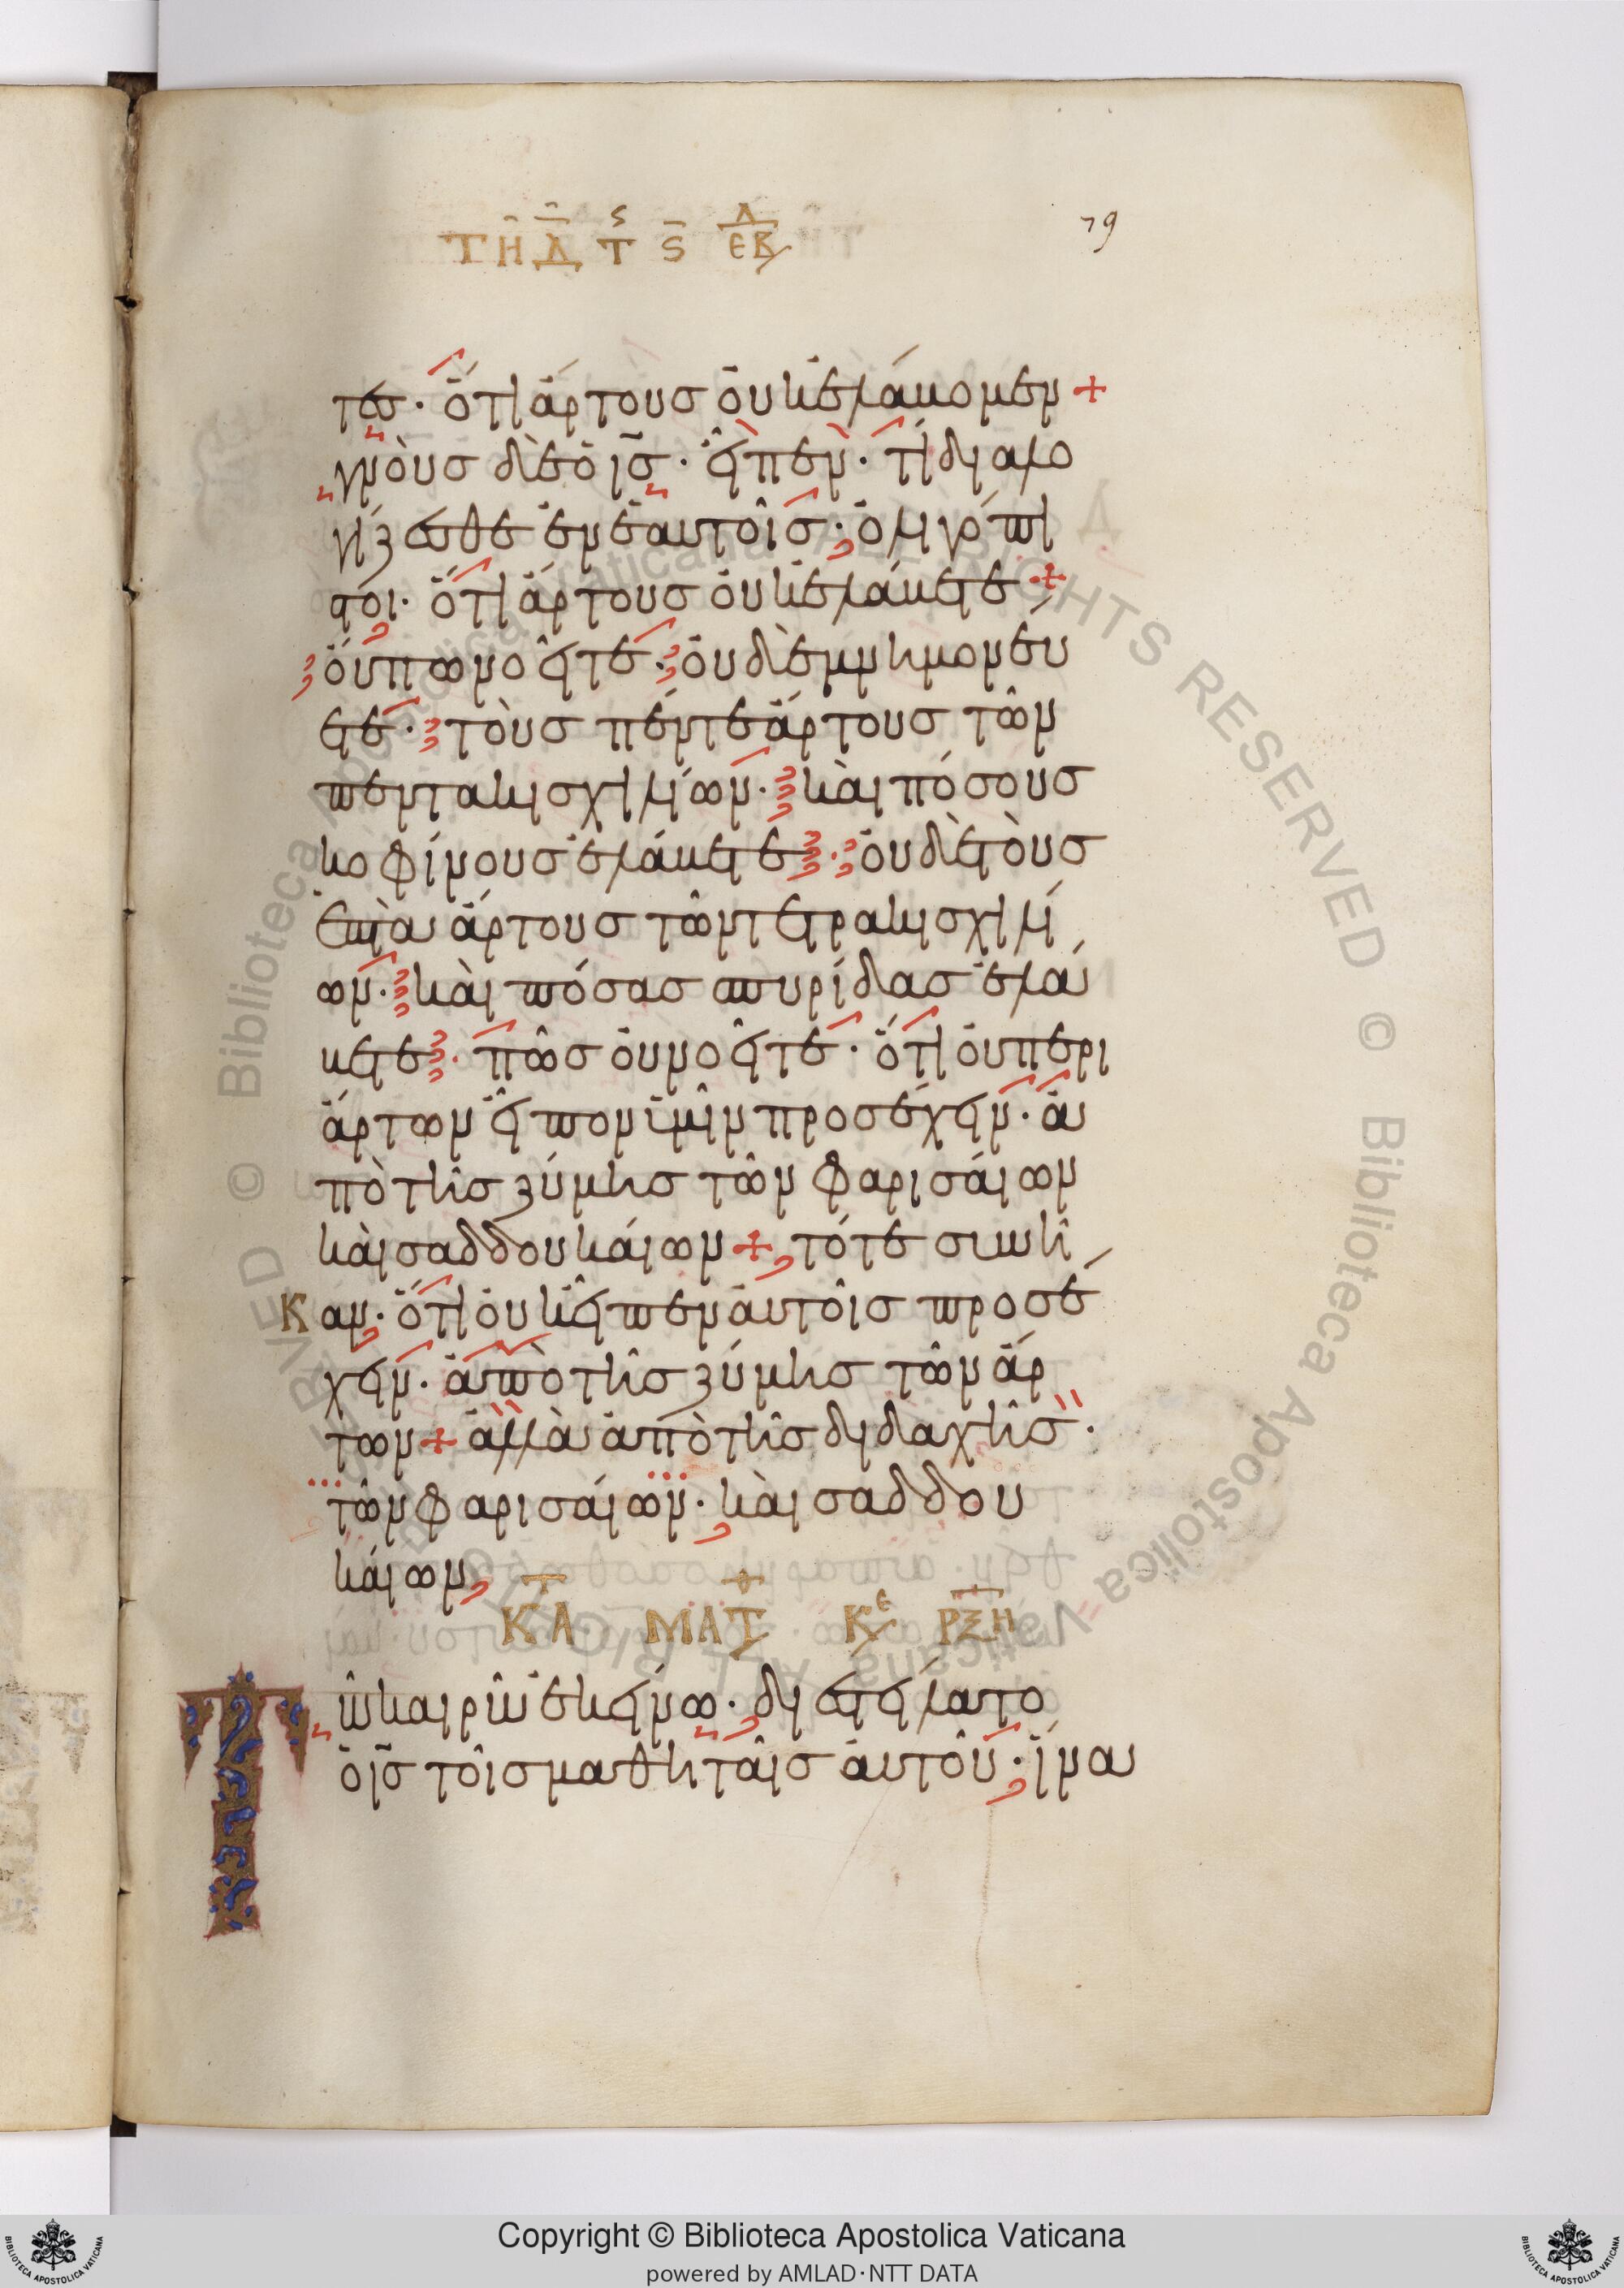 ΤΗ Δ Τ Ϛ ΕΒΔ
79
τες· ὅτι ἄρτους οὐκ ἐλάβομεν +
γνοὺς δὲ ὁ ις· εἶπεν· τί διαλο
γίζεσθε ἐν ἑαυτοῖς· ὀλιγόπι
στοι· ὅτι ἄρτους οὐκ ἐλάβετε +
οὔπω νοεῖτε· οὐδὲ μνημονεύ
ετε· τοὺς πέντε ἄρτους τῶν
πεντακισχιλίων· καὶ πόσους
κοφίνους ἐλάβετε· οὐδὲ τοὺς
ἑπτὰ ἄρτους τῶν τετρακισχιλί
ων· καὶ πόσας σπυρίδας ἐλά
βετε· πῶς οὐ νοεῖτε· ὅτι οὐ περι
ἄρτων εἶπον ὑμῖν προσέχειν· ἀ
πὸ τῆς ζύμης τῶν φαρισαίων
καὶ σαδδουκαίων + τότε συνῆ
Καν· ὅτι οὐκ εἶπεν αὐτοῖς προσέ
χειν· ἀπὸ τῆς ζύμης τῶν ἄρ
των + ἀλλὰ ἀπὸ τῆς διδαχῆς·
τῶν φαρισαίων· καὶ σαδδου
καίων
Κ Α· ΜΑΤΘ ΚΕ ΡΞΗ
Τῶ καιρῶ ἐκείνω· διεστείλατο
ὁ ις τοῖς μαθηταῖς αὐτοῦ· ἵνα
Copyright © Biblioteca Apostolica Vaticana
powered by AMLAD·NTT DATA